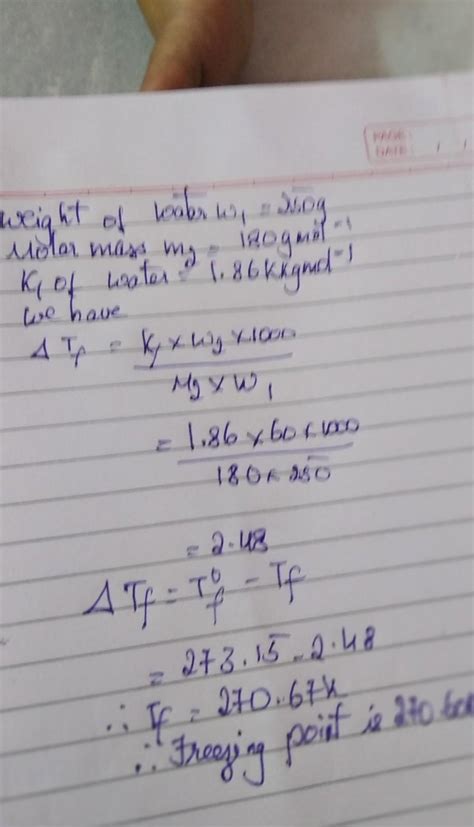 PAGE:
DATE: / /
weight of water w₁ = 250g
Molar mass m₂ = 180gmol⁻¹
Kf of water = 1.86KKgmol⁻¹
we have
Δ Tf = Kf × W₂ × 1000
M₂ × W₁
= 1.86 × 60 × 1000
180 × 250
= 2.48
Δ Tf = T⁰f - Tf
= 273.15 - 2.48
∴ Tf = 270.67K
∴ Freezing point is